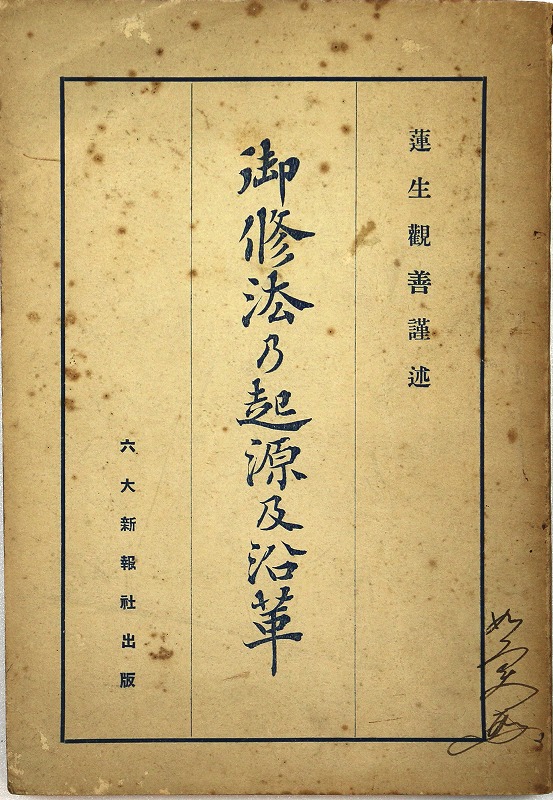 蓮生觀善謹述
御修法乃起源及沿革
六大新報社出版